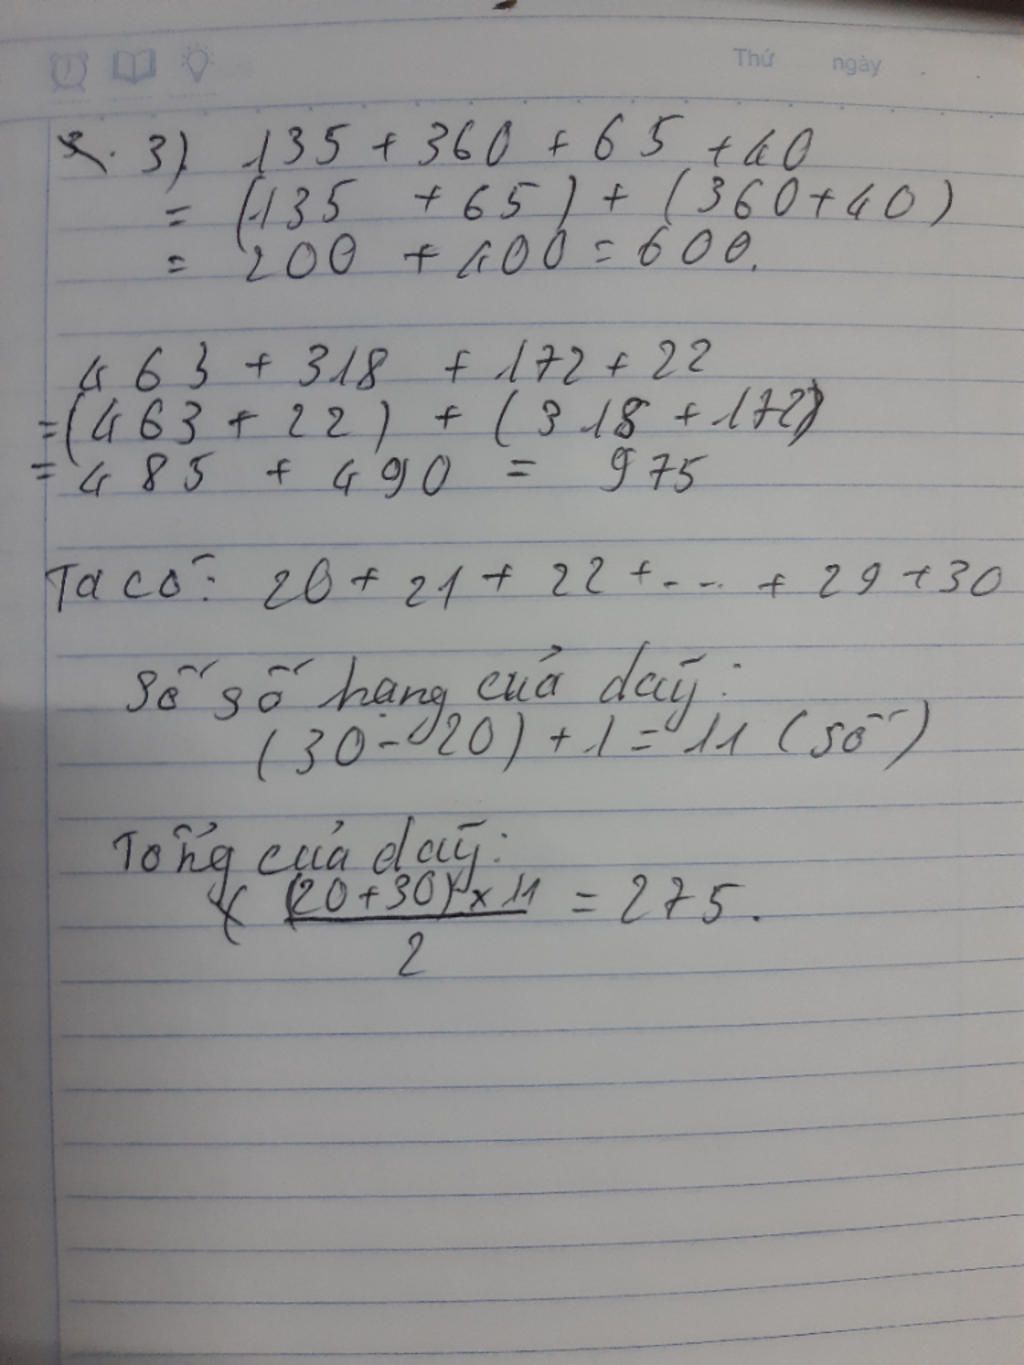 Thứ ngày . .
3) 135 + 360 + 65 + 40
= (135 + 65) + (360 + 40)
= 200 + 400 = 600.
463 + 318 + 172 + 22
= (463 + 22) + (318 + 172)
= 485 + 490 = 975
Ta có: 20 + 21 + 22 + ... + 29 + 30
Số số hạng của dãy:
(30 - 20) + 1 = 11 (số)
Tổng của dãy:
(20 + 30) x 11 = 275.
2